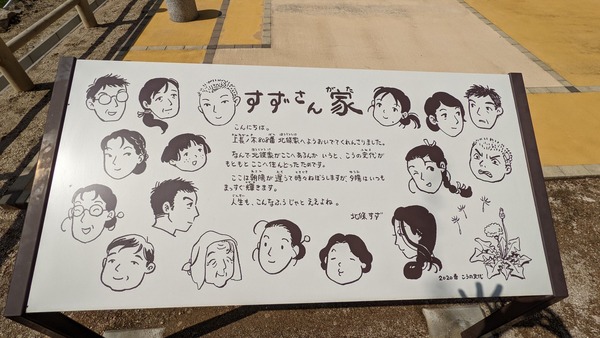 がた
すずさん家
こんにちは。
上長ノ木 北條家へようおいでてくれんさりました。
なんで北條家がここへあるんか いうと、こうの史代が
もともとここへ住んどったためです。
ここは朝陽が遅うて時々ねぼうしますが、夕陽はいつも
まっすぐ輝きます。
人生も、こんなふうじゃと ええよね。
北條すず
2020春 こうの史代